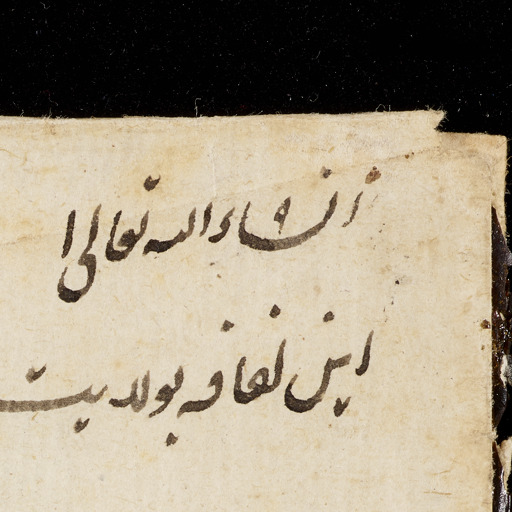 انشاء الله تعالی ا
این لفافه بولایت